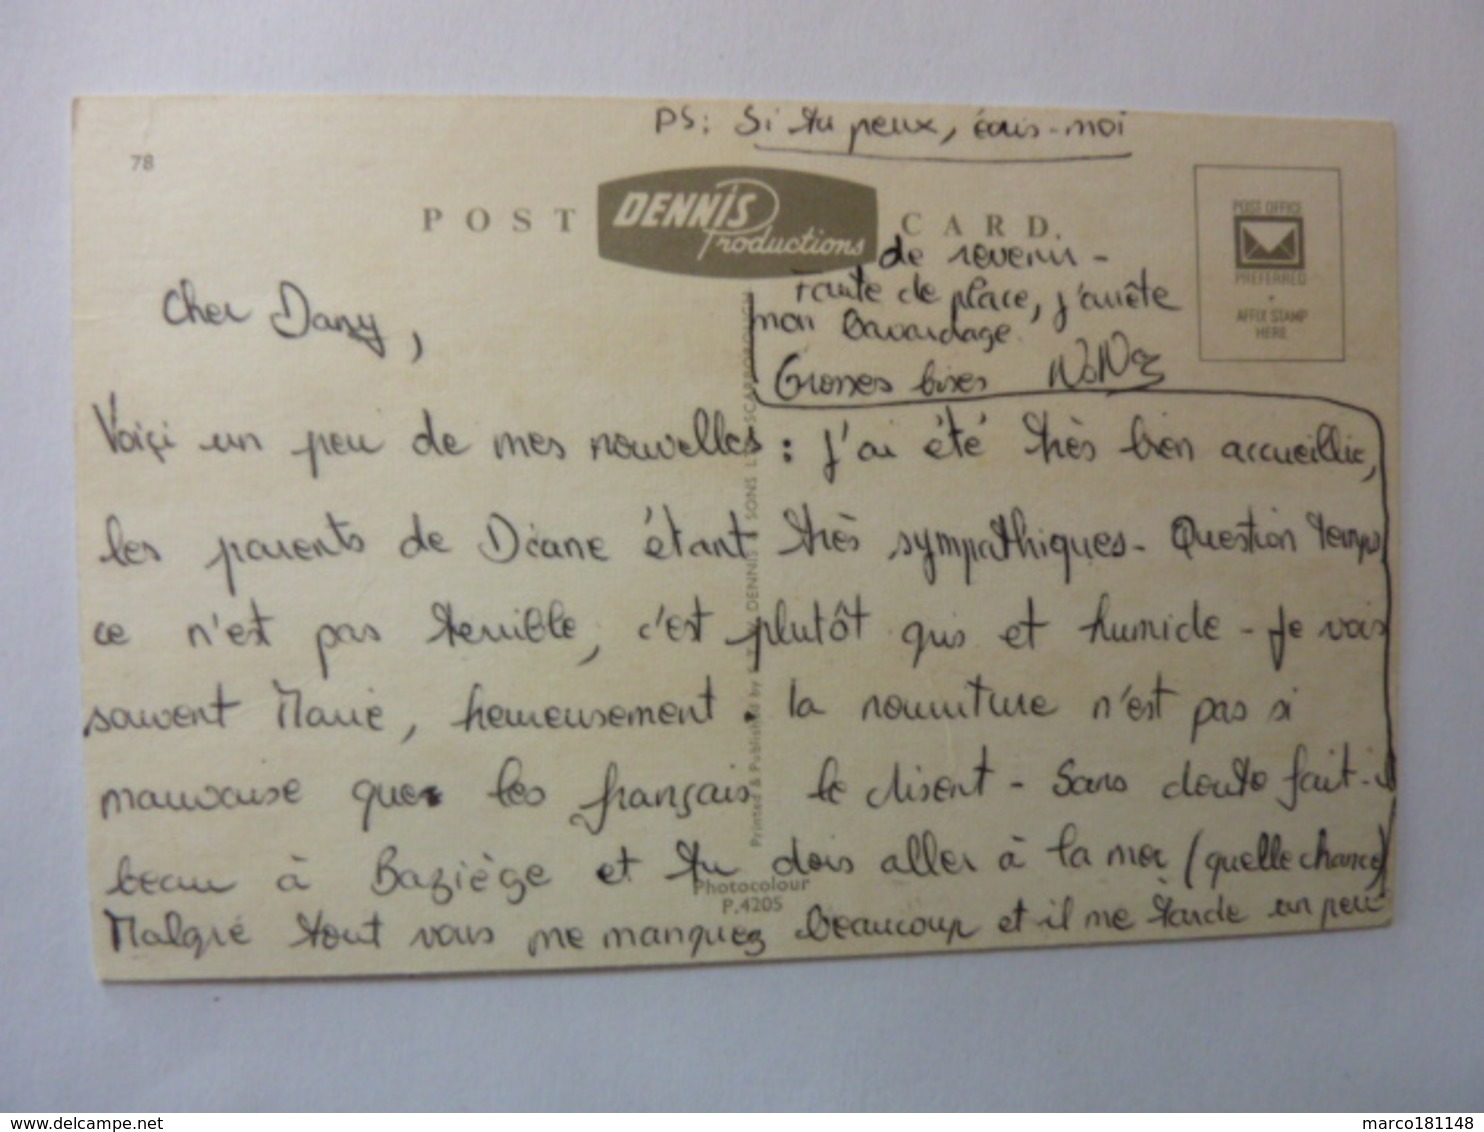 PS: Si tu peux, écris-moi
78
POST CARD.
DENNIS
Productions
POST OFFICE
PREFERRED
AFFIX STAMP
HERE
Cher Dany,
Voiçi un peu de mes nouvelles : j'ai été très bien accueillie,
les parents de Diane étant très sympathiques - Question temps
ce n'est pas terrible, c'est plutôt gris et humide - Je vois
souvent Marie, heureusement. la nourriture n'est pas si
mauvaise que les français le disent - Sans doute fait-il
beau à Baziège et tu dois aller à la mer (quelle chance)
Malgré tout vous me manquez beaucoup et il me tarde un peu
de revenir -
Faute de place, j'arrête
mon bavardage.
Grosses bises NoNo
Printed & Published by E.T.W. DENNIS & SONS LTD. SCARBOROUGH
Photocolour
P.4205
delcampe.net
marco181148